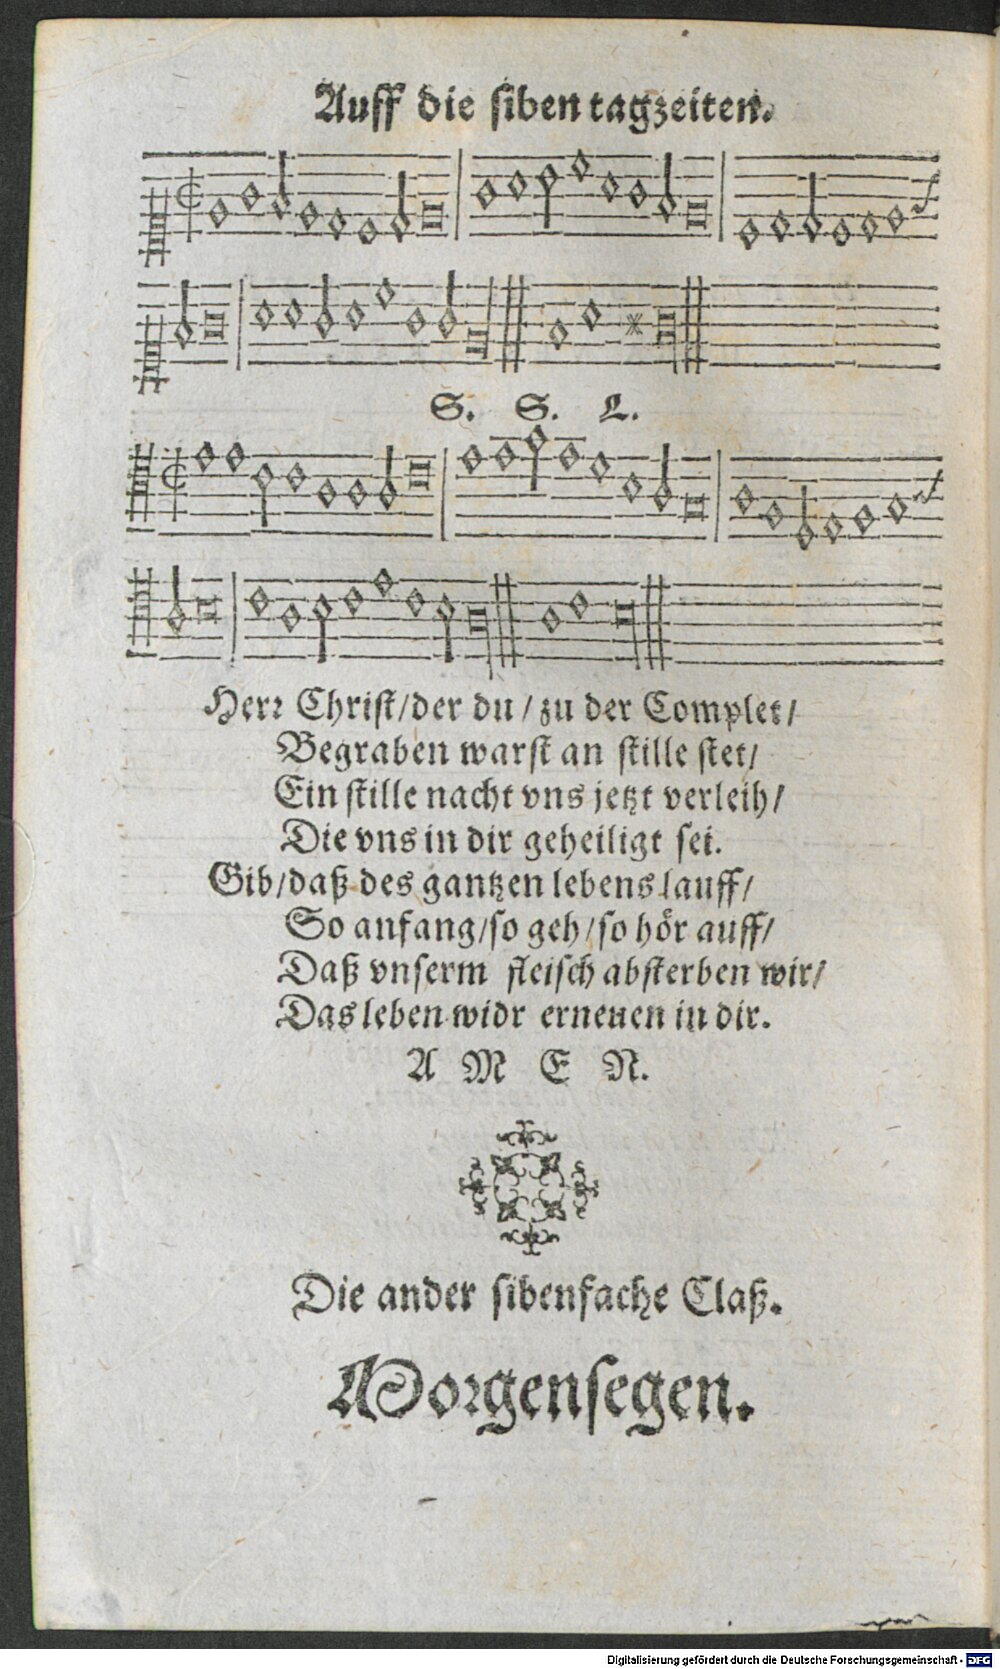 Auff die siben tagzeiten.
S. S. L.
Herr Christ/der du/zu der Complet/
Begraben warst an stille stet/
Ein stille nacht vns jetzt verleih/
Die vns in dir geheiligt sei.
Gib/daß des gantzen lebens lauff/
So anfang/so geh/so hör auff/
Daß vnserm fleisch absterben wir/
Das leben widr erneuen in dir.
A M E N.
Die ander sibenfache Claß.
Morgensegen.
Digitalisierung gefördert durch die Deutsche Forschungsgemeinschaft - DFG